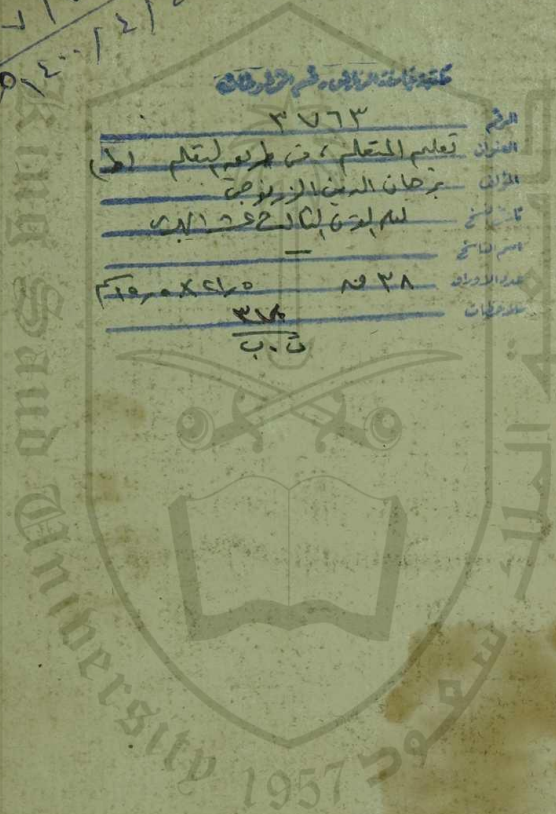 ١٤٠٠/٤/
مكتبة جامعة الرياض - قسم المخطوطات
الرقم ٣٧٦٣
العنوان تعليم المتعلم، في طريق التعلم (ط)
المؤلف برهان الدين الزرنوجي
تاريخ النسخ القرن الثالث عشر الهجري
اسم الناسخ —
عدد الاوراق ٣٨ ق ٢١٫٥ × ١٥٫٥ سم
ملاحظات
ت.ب
King Saud University
جامعة الملك سعود
1957